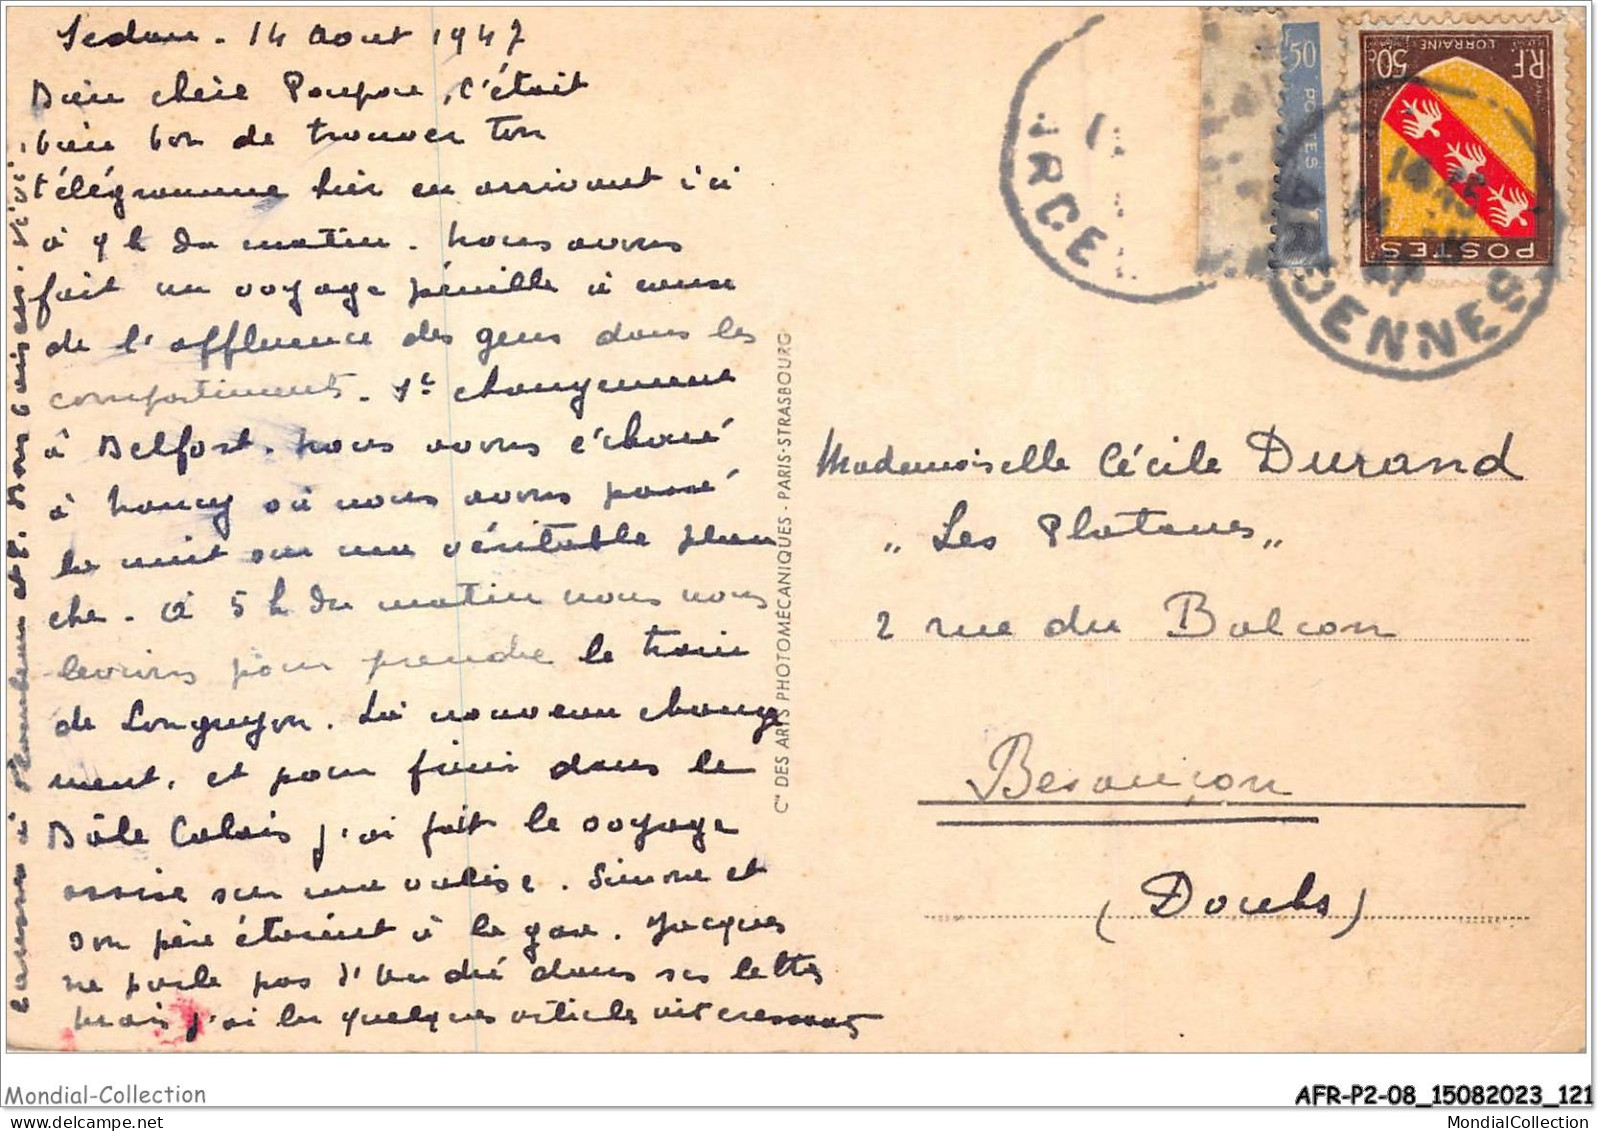 Sedan - 14 Aout 1947
Bien chère Poupou, c'était
bien bon de trouver ton
télégramme hier en arrivant ici
à 9 h du matin. Nous avons
fait un voyage pénible à cause
de l'affluence des gens dans les
compartiments. 1er changement
à Belfort. Nous avons échoué
à Nancy où nous avons passé
la nuit sur une véritable plan
che. à 5 h du matin nous nous
levions pour prendre le train
de Longuyon. Là nouveau change
ment, et pour finir dans le
Bâle Calais j'ai fait le voyage
assise sur une valise. Simone et
son père étaient à la gare. Jacques
ne parle pas d'André dans ses lettres
mais j'ai lu quelques articles intéressants
à et E. Bons baisers.
Cie DES ARTS PHOTOMÉCANIQUES - PARIS-STRASBOURG
50
POSTES
RF
LORRAINE
50c
POSTES
ARDENNES
Mademoiselle Cécile Durand
"Les Platanes"
2 rue du Balcon
Besançon
(Doubs)
Mondial-Collection
AFR-P2-08_15082023_121
www.mondialcollection.com
MondialCollection